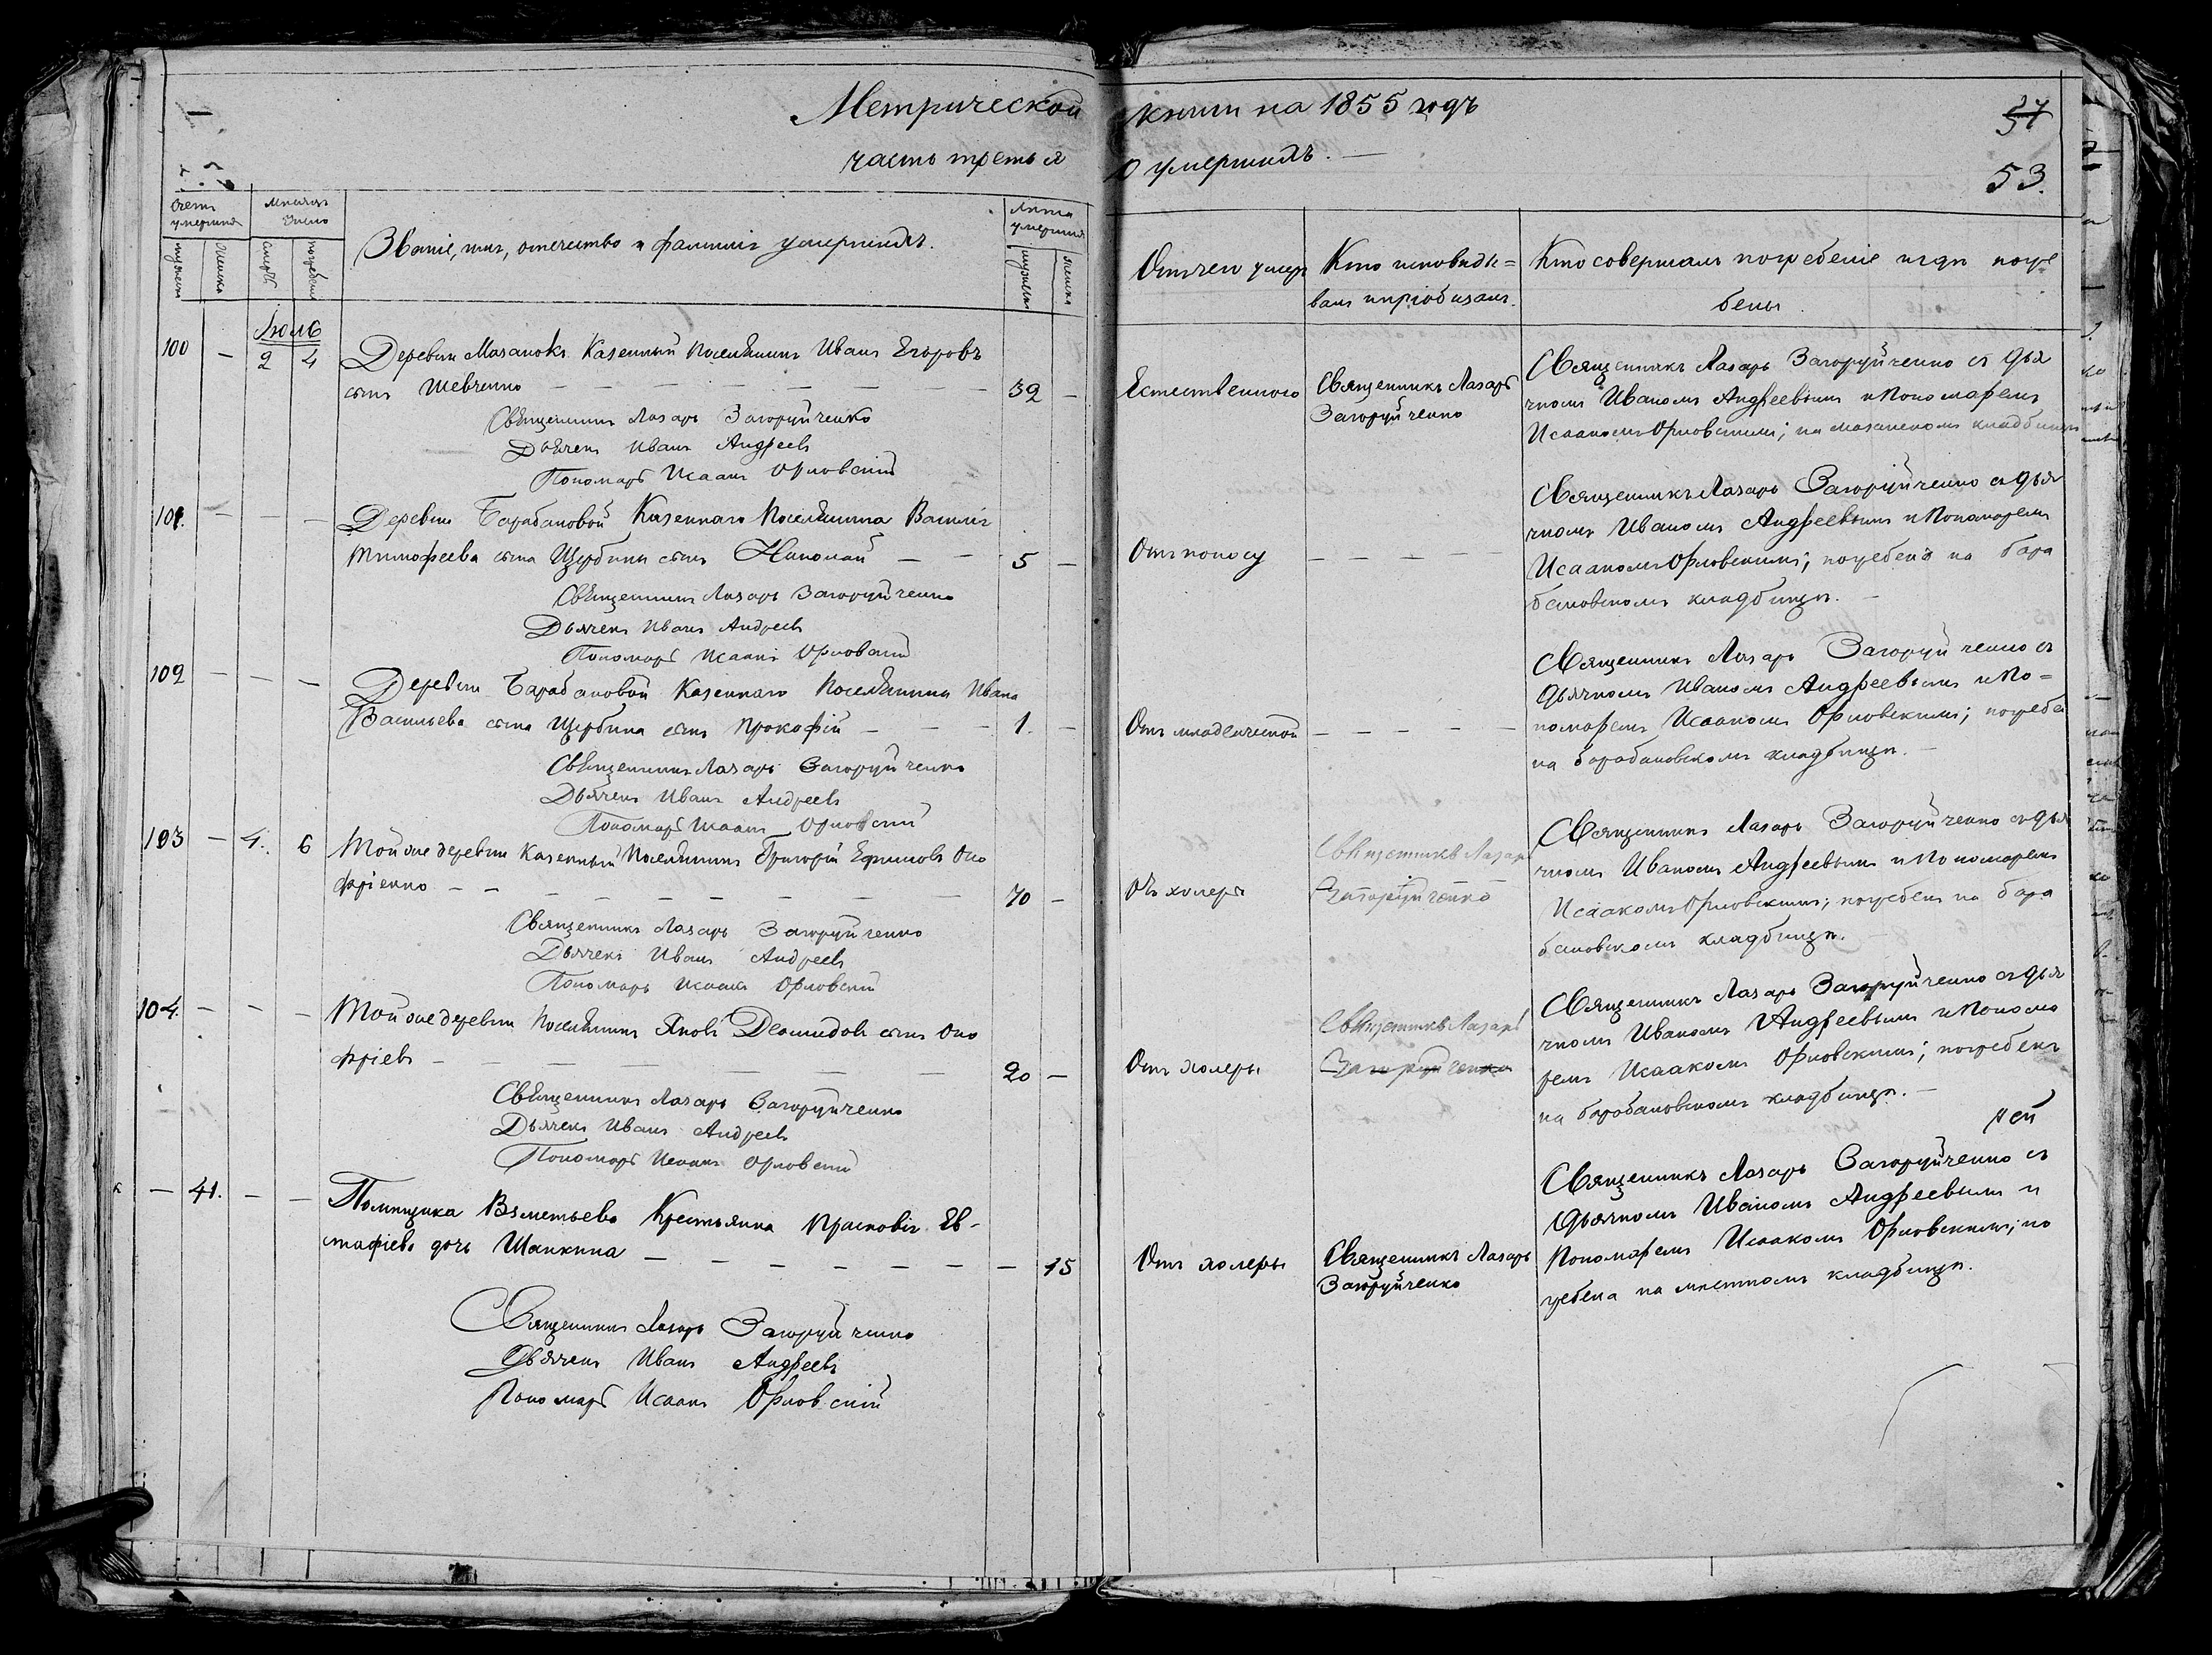 Метрической книги на 1855 годъ
37
часть третья о умершихъ. —
53.
Счетъ умершихъ
Мѣсяцъ Число
Званіе, имя, отечество и фамилія умершихъ.
Лѣта умершихъ
Отчего умеръ
Кто исповѣды=
валъ и пріобщалъ.
Кто совершалъ погребеніе и гдѣ погре
бены.
мужеска
женска
смерть
погребенія
мужеска
женска
Іюль
100 — 2 4 Деревни Мазанокъ Казенный Поселянинъ Иванъ Егоровъ
сынъ Шевченко — — — — — — 32 —
Священникъ Лазарь Загоруйченко
Дьячекъ Иванъ Андреевъ
Пономарь Исаакъ Орловскій
Естественного
Священникъ Лазарь
Загоруйченко
Священникъ Лазарь Загоруйченко съ дья
чкомъ Иваномъ Андреевымъ и Пономаремъ
Исаакомъ Орловскимъ; на мазанскомъ кладбищѣ
101. — — — Деревни Барабановой Казеннаго Поселянина Василія
Тимофеева сына Щербины сынъ Николай — — 5 —
Священникъ Лазарь Загоруйченко
Дьячекъ Иванъ Андреевъ
Пономарь Исаакъ Орловскій
Отъ поносу — — — —
Священникъ Лазарь Загоруйченко съ дья
чкомъ Иваномъ Андреевымъ и Пономаремъ
Исаакомъ Орловскимъ; погребенъ на бара
бановскомъ кладбищѣ. —
102 — — — Деревни Барабановой Казеннаго Поселянина Ивана
Васильева сына Щербина сынъ Прокофій — — — 1. —
Священникъ Лазарь Загоруйченко
Дьячекъ Иванъ Андреевъ
Пономарь Исаакъ Орловскій
Отъ младенческой — — — — —
Священникъ Лазарь Загоруйченко съ
дьячкомъ Иваномъ Андреевымъ и По=
номаремъ Исаакомъ Орловскимъ; погребе
на барабановскомъ кладбищѣ. —
103 — 4. 6 Той же деревни Казенный Поселянинъ Григорій Ефимовъ Оно
фріенко — — — — — — — 70 —
Священникъ Лазарь Загоруйченко
Дьячекъ Иванъ Андреевъ
Пономарь Исаакъ Орловскій
Отъ холеры
Священникъ Лазарь
Загоруйченко
Священникъ Лазарь Загоруйченко съ дья
чкомъ Иваномъ Андреевымъ и Пономаремъ
Исаакомъ Орловскимъ; погребенъ на бара
бановскомъ кладбищѣ. —
104. — — — Той же деревни Поселянинъ Яковъ Деомидовъ сынъ Оно
фріевъ — — — — — — — 20 —
Священникъ Лазарь Загоруйченко
Дьячекъ Иванъ Андреевъ
Пономарь Исаакъ Орловскій
Отъ холеры
Священникъ Лазарь
Загоруйченко
Священникъ Лазарь Загоруйченко съ дья
чкомъ Иваномъ Андреевымъ и Понома
ремъ Исаакомъ Орловскимъ; погребенъ
на барабановскомъ кладбищѣ. —
— 41. — — Помѣщика Взметьева Крестьянка Прасковія Ев-
стафіева дочь Шапкина — — — — — — — 15
Священникъ Лазарь Загоруйченко
Дьячекъ Иванъ Андреевъ
Пономарь Исаакъ Орловскій
Отъ холеры
Священникъ Лазарь
Загоруйченко
Священникъ Лазарь Загоруйченко съ
дьячкомъ Иваномъ Андреевымъ и
Пономаремъ Исаакомъ Орловскимъ; по
гребена на мѣстномъ кладбищѣ.